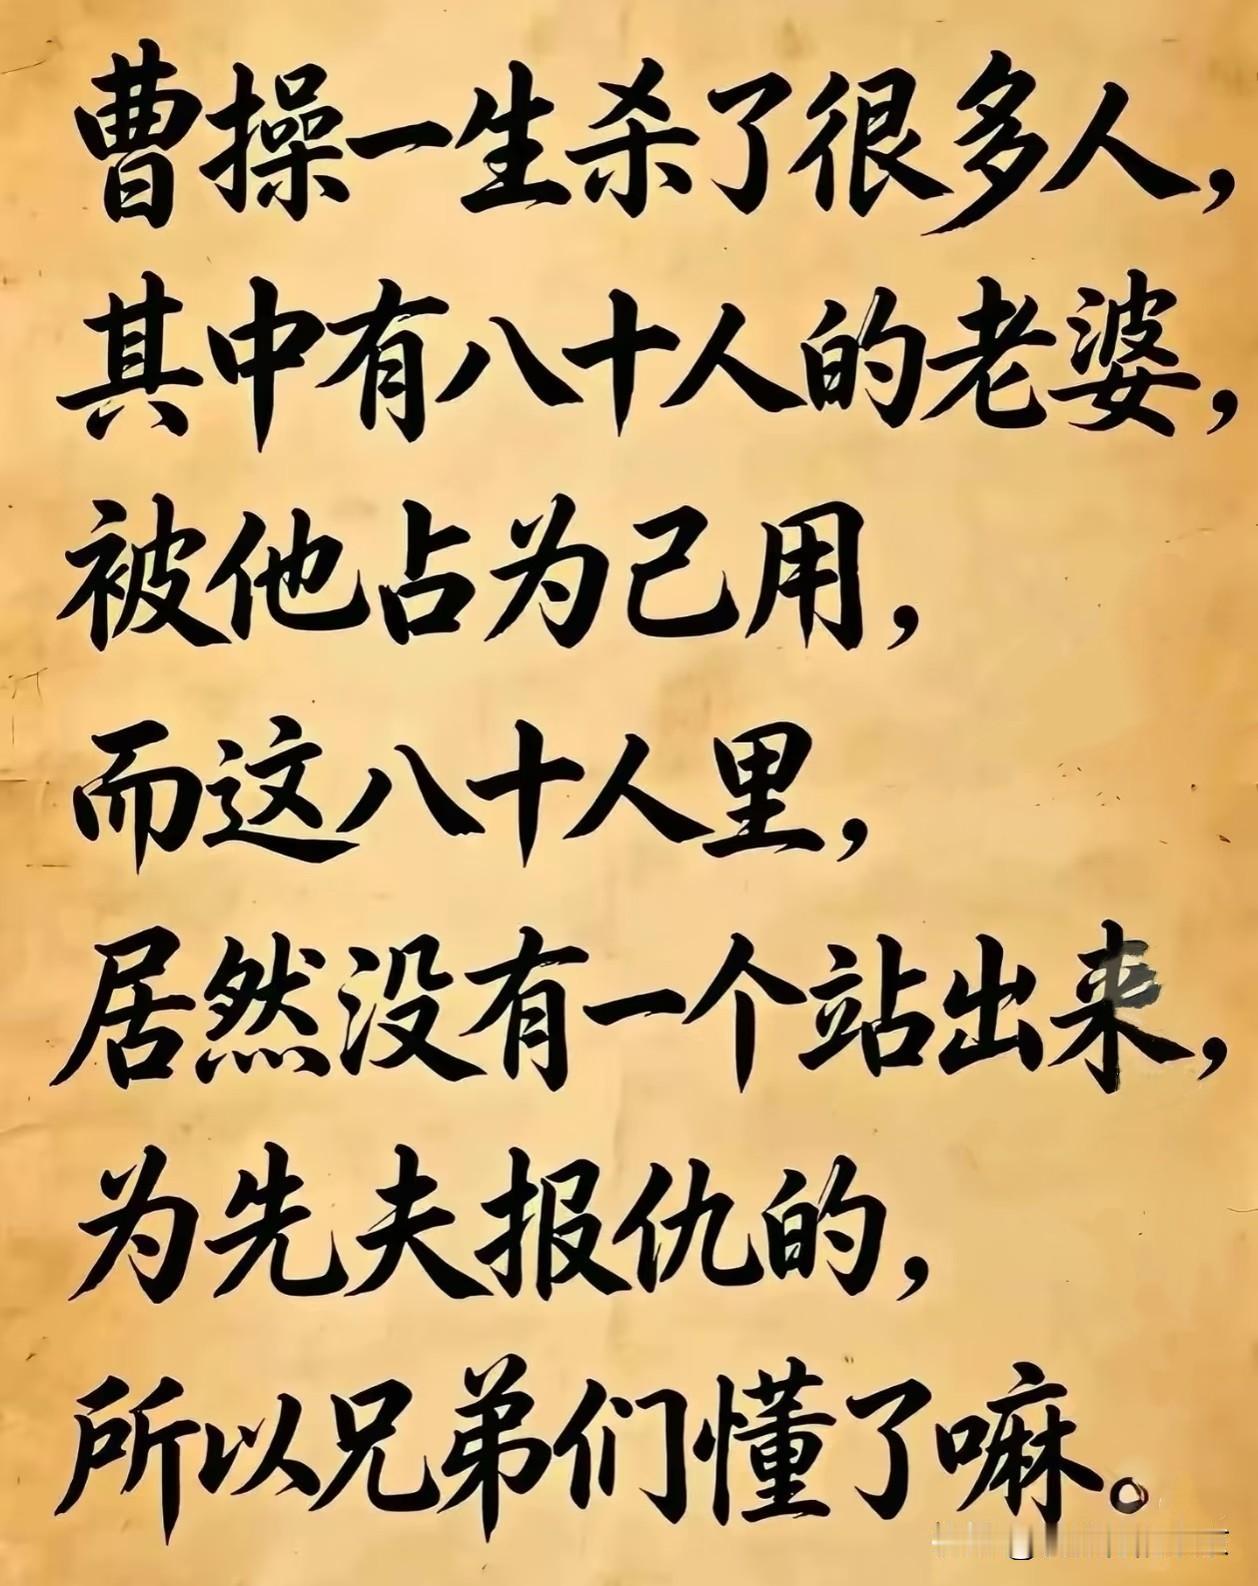 曹操一生杀了很多人，
其中有八十人的老婆，
被他占为己用，
而这八十人里，
居然没有一个站出来，
为先夫报仇的，
所以兄弟们懂了嘛。